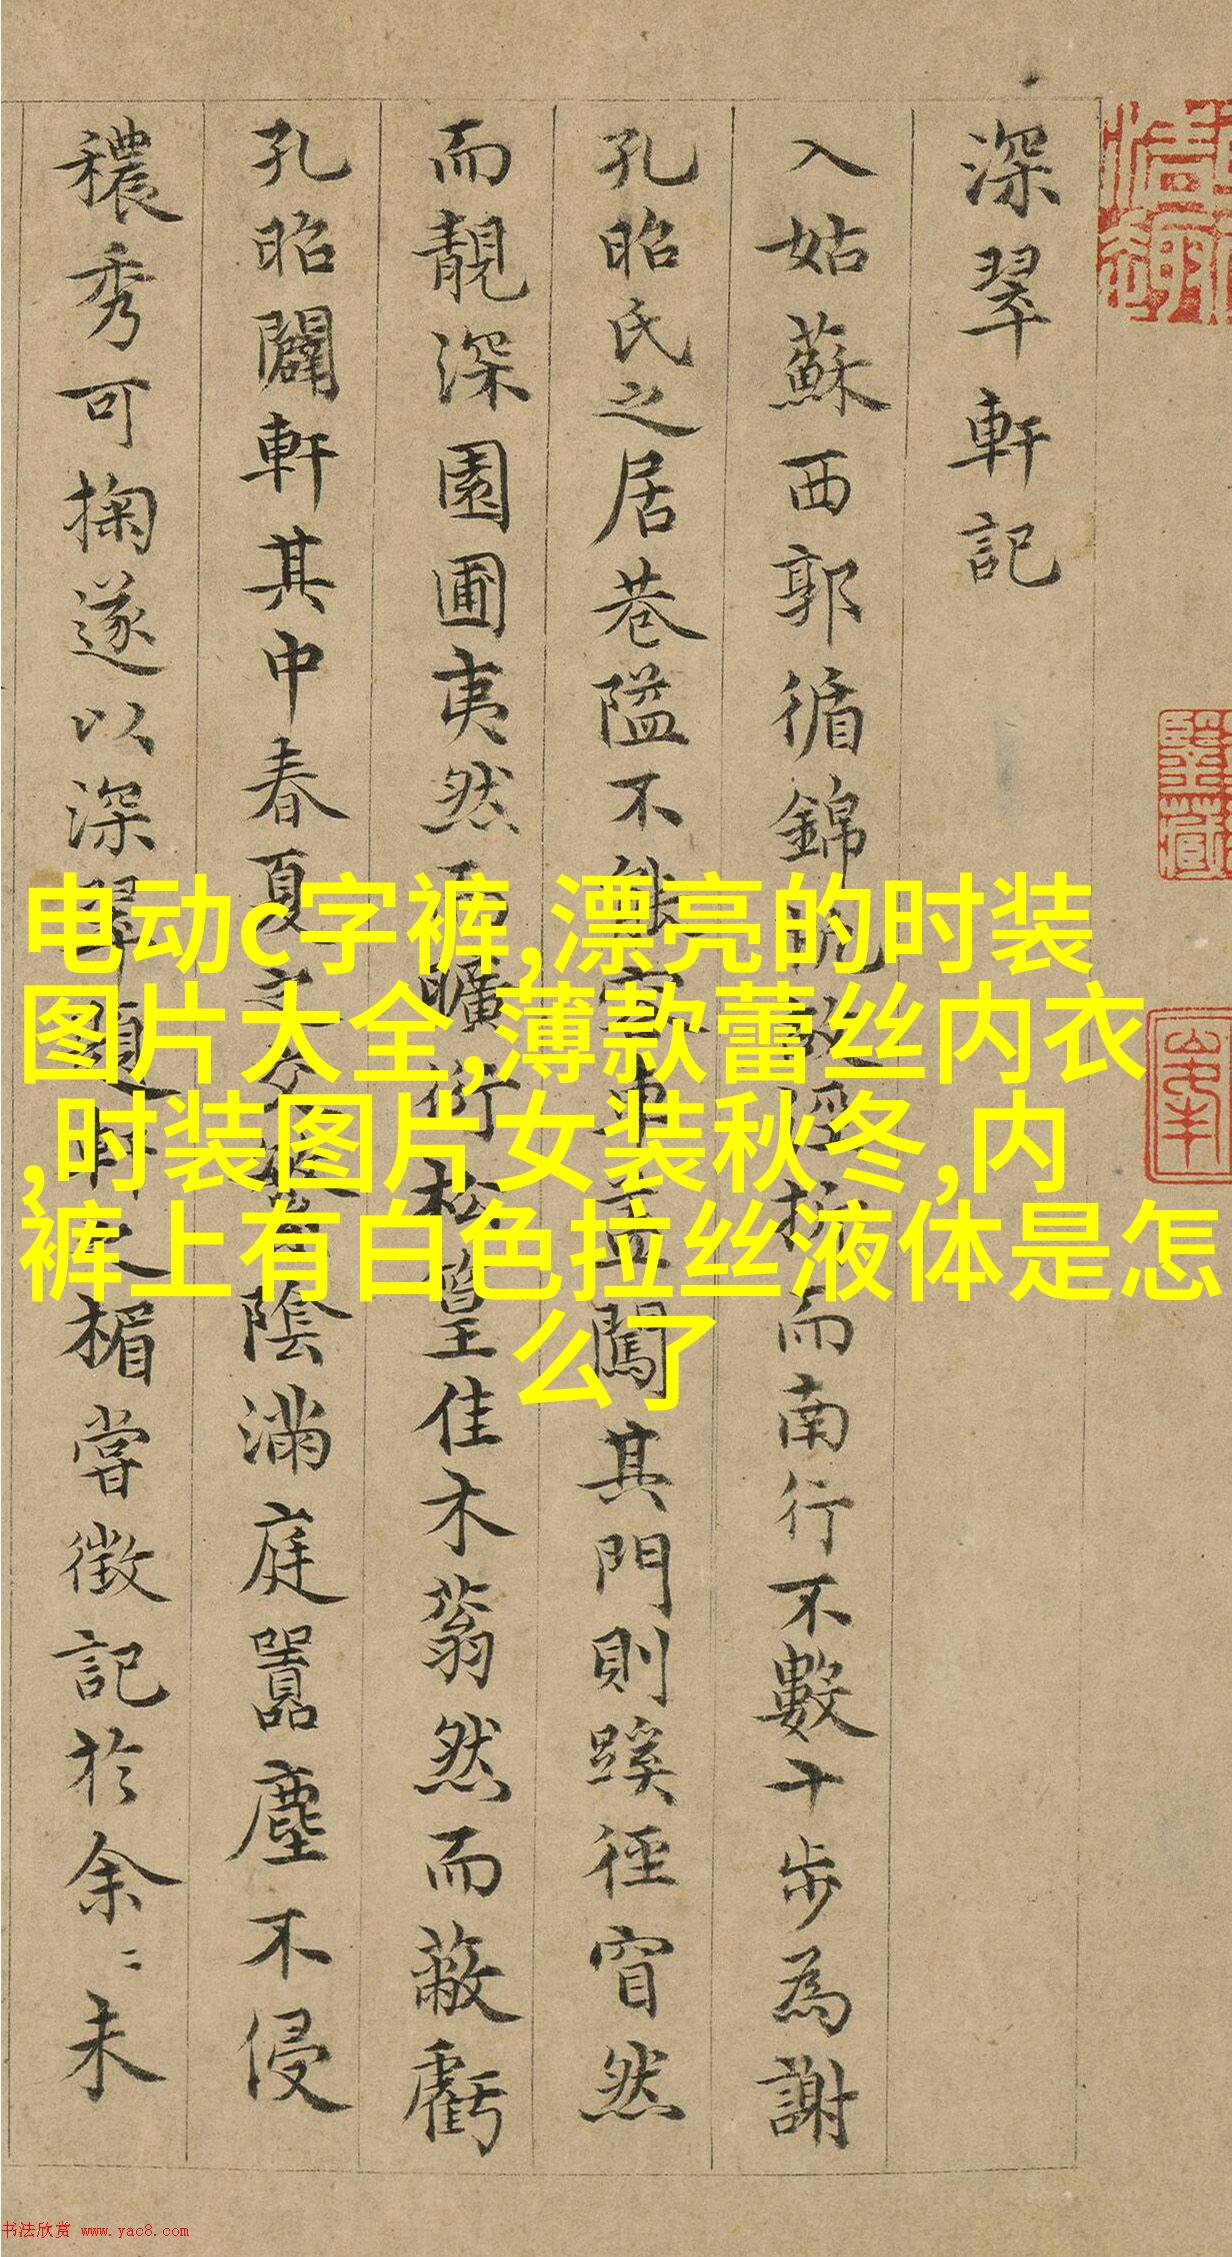 深翠軒記
入姑蘇西郭循錦帆故徑折而南行不數十步為謝
孔昭氏之居巷隘不能容車蓋闖其門則蹊徑窅然
而靚深園圃夷然而曠衍松篁佳木蓊然而蔽虧
孔昭闢軒其中春夏之交陰滿庭囂塵不侵
穠秀可掬遂以深翠題軒之楣嘗徵記於余〻未
电动c字裤,漂亮的时装
图片大全,薄款蕾丝内衣
,时装图片女装秋冬,内
裤上有白色拉丝液体是怎
么了
书法欣赏 www.yac8.com